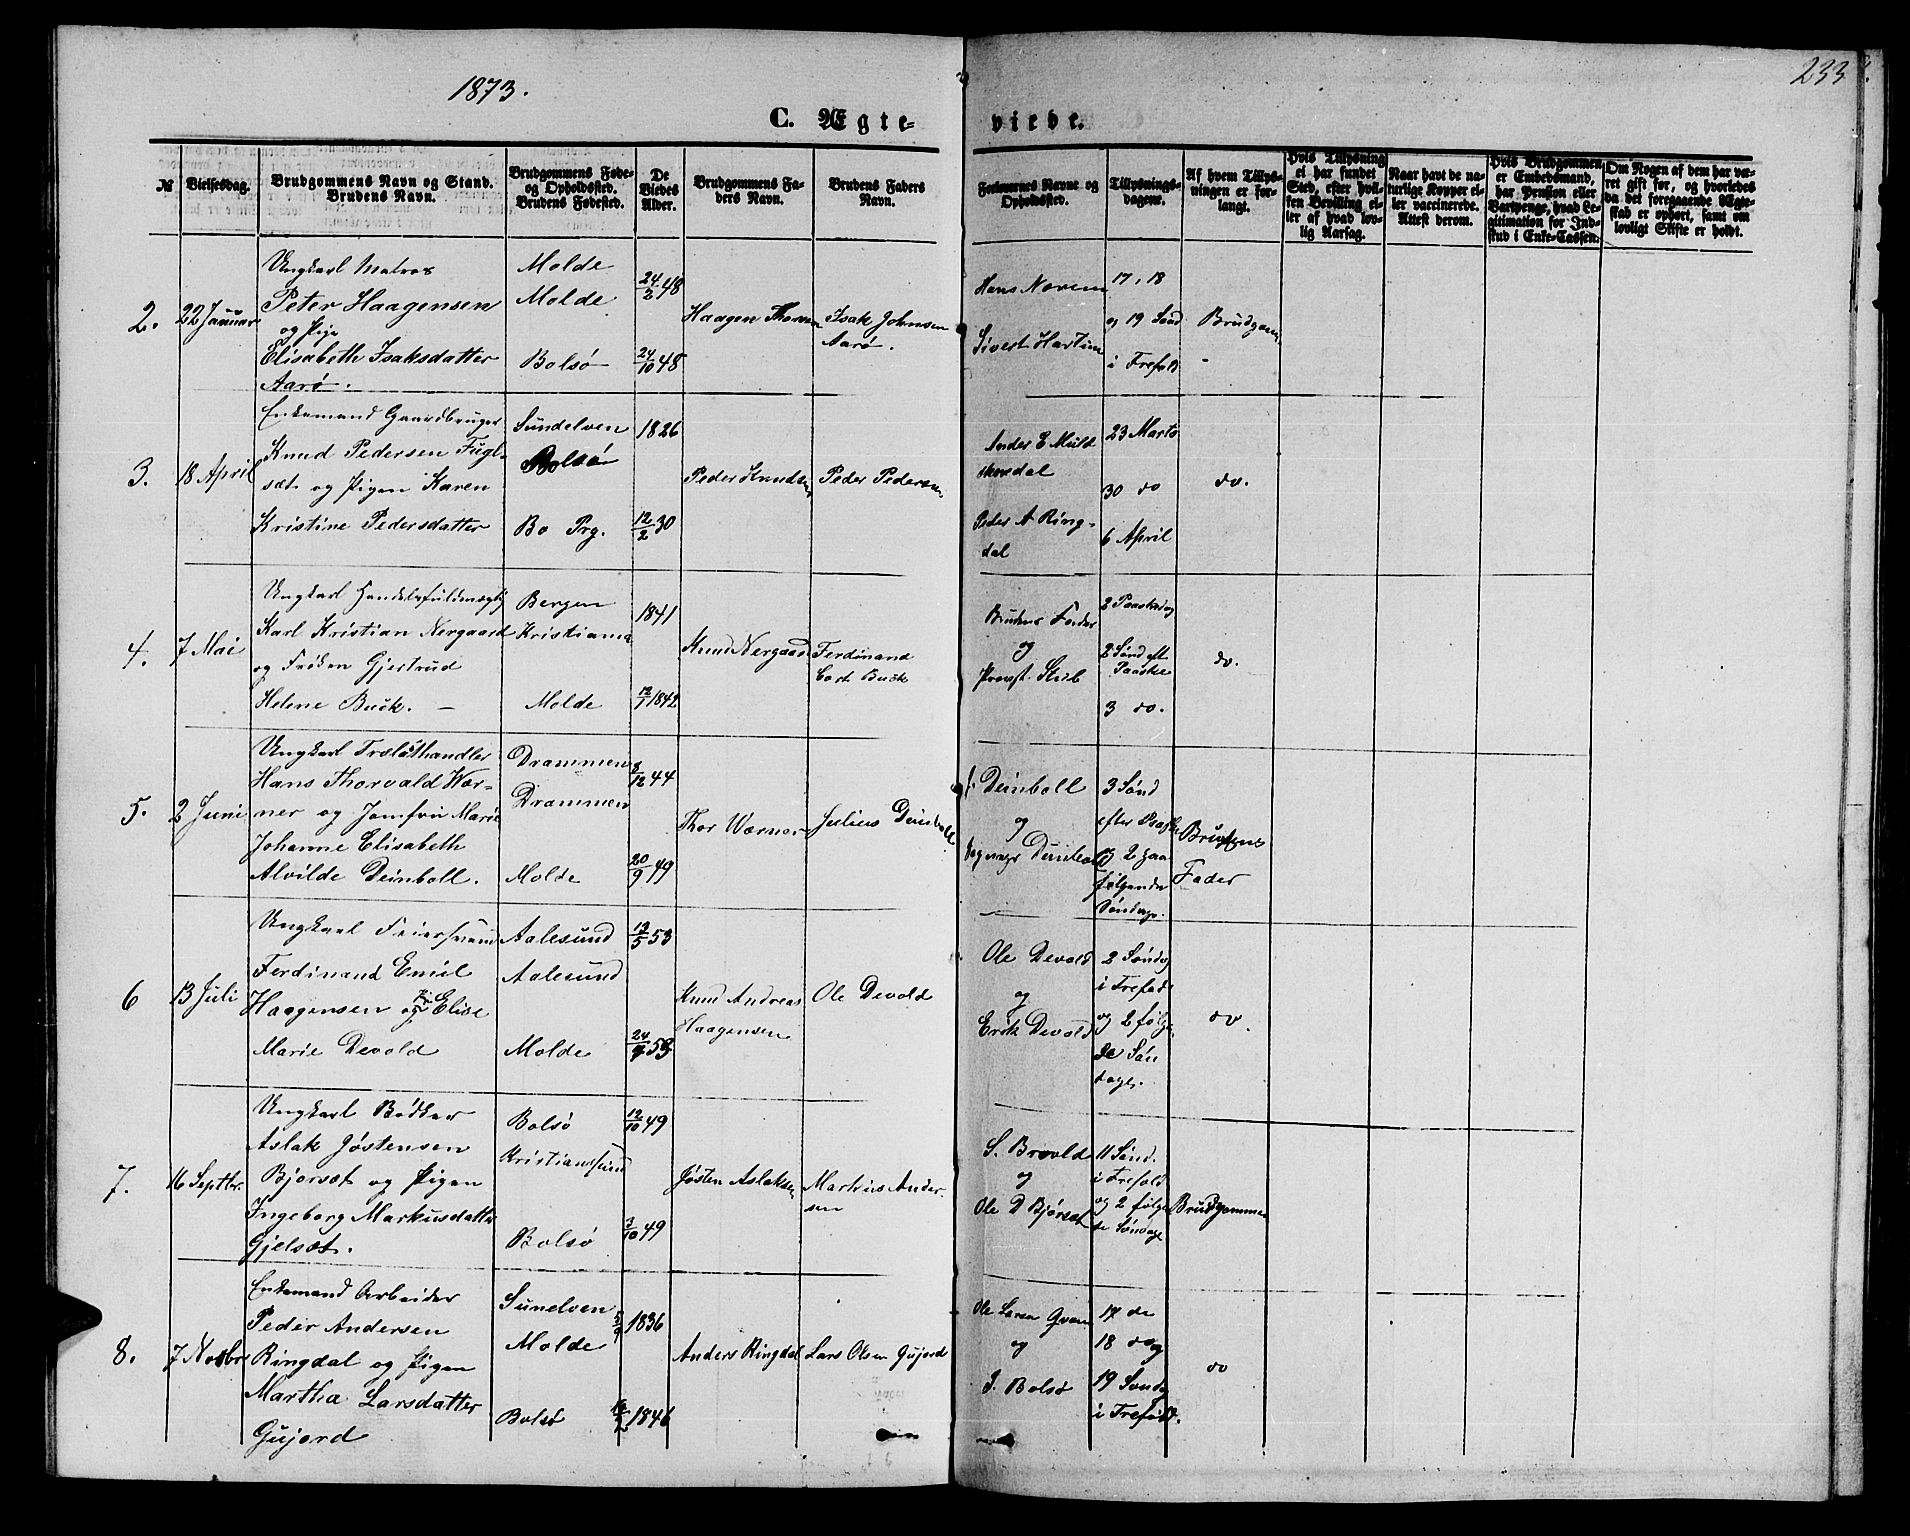 1873.
233
C. Ægte-
viede.
№
Vielsesdag.
Brudgommens Navn og Stand.
Brudens Navn.
Brudgommens Føde-
og Opholdssted.
Brudens Fødested.
De
Viedes
Alder.
Brudgommens Fa-
ders Navn.
Brudens Faders
Navn.
Forlovernes Navne og
Opholdssted.
Tillysnings-
dagene.
Af hvem Tillys-
ningen er for-
langt.
Hvis Tillysning
ei har fundet
Sted, efter hvil-
ken Bevilling el-
ler af hvad lov-
lig Aarsag.
Naar havt de na-
turlige Kopper el-
ler vaccinerede.
Attest derom.
Hvis Brudgommen
er Embedsmand,
har Pension eller
Vartpenge, hvad Le-
gitimation for Ind-
skud i Enke-Cassen.
Om Nogen af dem har væ-
ret gift før, og hvorledes
da det foregaaende Ægte-
skab er ophørt, samt om
lovligt Skifte er holdt.
2.
22 Januar
Ungkarl Matros
Peter Haagensen
og Pige
Elisabeth Isaksdatter
Aarø.
Molde
Molde
Bolsø
24/2 48
24/10 48
Haagen
Isak Johnsen
Aarø.
Hans
Sivert
17, 18
og 19 Sønd
i Trefold
Brudgom
3.
18 April
Enkemand Gaardbruger
Knud Pedersen Fugl-
sæt og Pigen Karen
Kristine Pedersdatter
Sundelven
Bolsø
Bo Prg.
1826
12/2 30
Peder Knudsen
Peder Pedersen
Anders E
Peder A Ring-
dal
23 Marts
30 do
6 April
do.
4.
7 Mai
Ungkarl Handelsfuldmægtig
Karl Kristian Nergaard
og Frøken Gjertrud
Helene Buck. –
Bergen
Kristiania
Molde
1841
12/7 1842
Knud Nergaard
Ferdinand
Carl Buck
Brudens Fader
og
Provst
2 Paaskedag
2 Sønd eft
Paaske
3 do.
do.
5.
2 Juni
Ungkarl Trælasthandler
Hans Thorvald Wær-
ner og Jomfru Marie
Johanne Elisabeth
Alvilde Deinboll.
Drammen
Drammen
Molde
8/12 44
20/9 49
Thor Wærner
Julius Deinboll
Deinboll
og
Deinboll
3 Sønd
efter Paaske
og 2 paa
følgende
Søndage.
Brudens
Fader
6
13 Juli
Ungkarl
Ferdinand Emil
Haagensen og Elise
Marie Devold
Aalesund
Aalesund
Molde
13/5 53
Knud Andreas
Haagensen
Ole Devold
Ole Devold
og
Erik Devold
2 Søndag
i Trefold
og 2 følgen
de Søn
dage.
do.
7.
16 Septbr.
Ungkarl Bødker
Aslak Jøstensen
Bjørsæt og Pigen
Ingeborg Markusdatter
Gjelsæt.
Bolsø
Kristianssund
Bolsø
12/10 49
3/10 49
Jøsten Aslaksen
Markus Ander-
sen
og
Ole D Bjørset
11 Sønd.
i Trefold
og 2 følgen
de Søndage
Brudgommen
8.
7 Novbr
Enkemand Arbeider
Peder Andersen
Ringdal og Pigen
Martha Larsdatter
Gujord
Sunelven
Molde
Bolsø
1836
1846
Anders Ringdal
Lars Olsen Gujord
Ole Larsen
og
Bolsø
17 de
18 do og
19 Søndag
i Trefold.
do